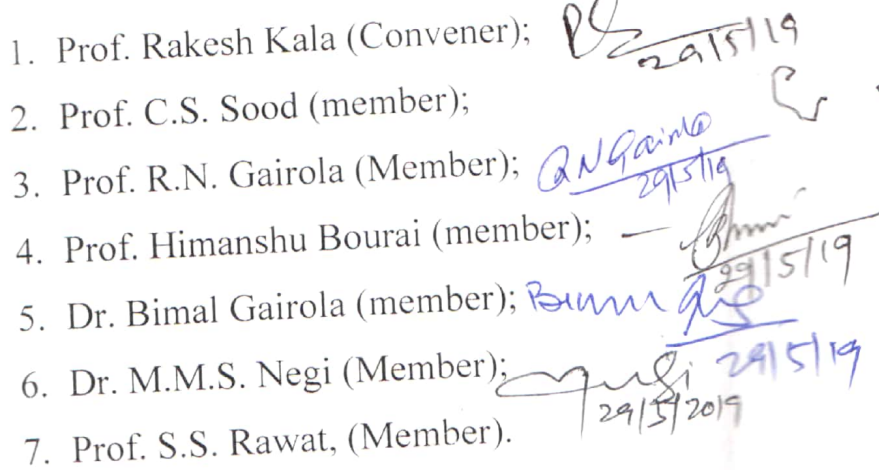 1. Prof. Rakesh Kala (Convener); 29/5/19
2. Prof. C.S. Sood (member);
3. Prof. R.N. Gairola (Member); RNGairola 29/5/19
4. Prof. Himanshu Bourai (member); — 29/5/19
5. Dr. Bimal Gairola (member); 29/5/19
6. Dr. M.M.S. Negi (Member); Negi 29/5/2019
7. Prof. S.S. Rawat, (Member).